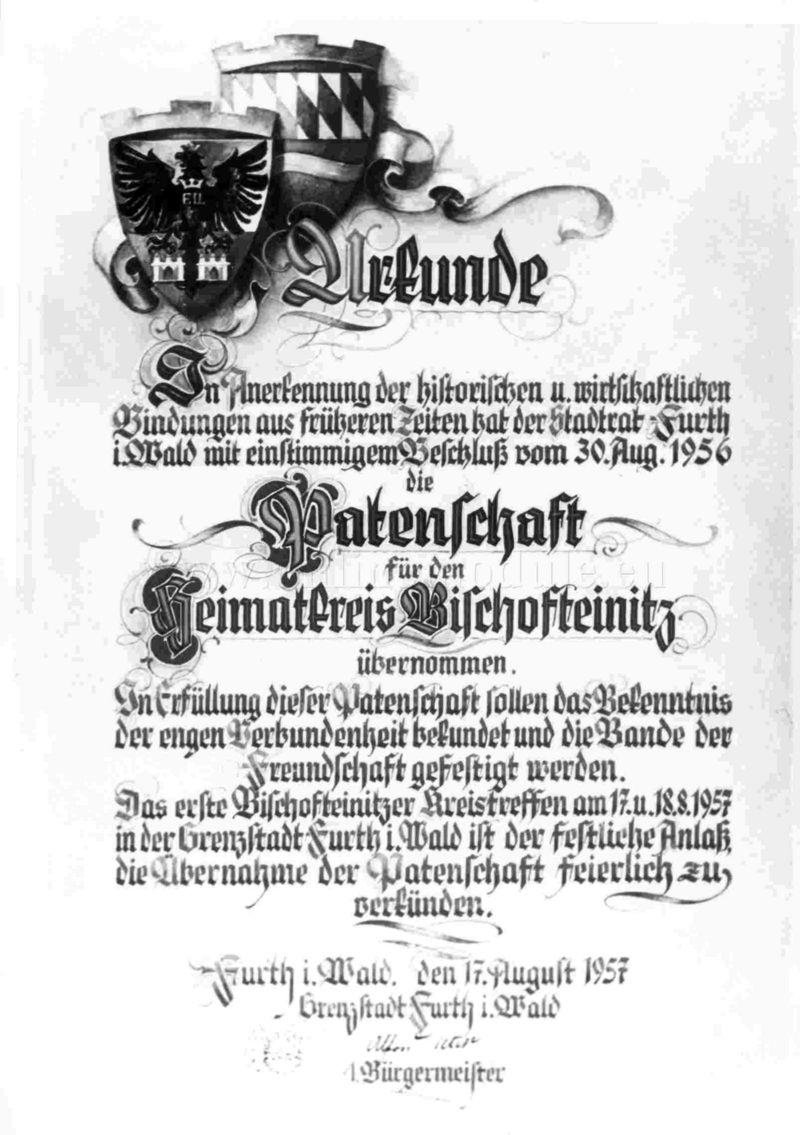 F.II.
Urkunde
In Anerkennung der historischen u. wirtschaftlichen
Bindungen aus früheren Zeiten hat der Stadtrat Furth
i. Wald mit einstimmigem Beschluß vom 30. Aug. 1956
die
Patenschaft
für den
Heimatkreis Bischofteinitz
übernommen.
In Erfüllung dieser Patenschaft sollen das Bekenntnis
der engen Verbundenheit bekundet und die Bande der
Freundschaft gefestigt werden.
Das erste Bischofteinitzer Kreistreffen am 17. u. 18.8.1957
in der Grenzstadt Furth i. Wald ist der festliche Anlaß,
die Übernahme der Patenschaft feierlich zu
verkünden.
Furth i. Wald, den 17. August 1957
Grenzstadt Furth i. Wald
1. Bürgermeister